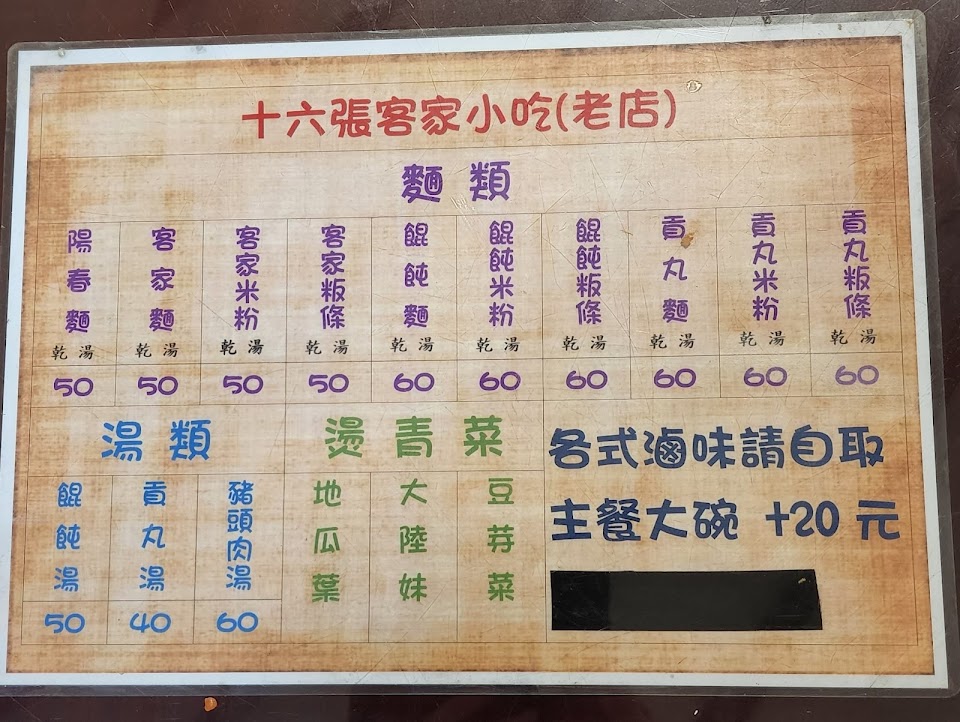 十六張客家小吃(老店)
麵類
陽春麵 乾 湯 50
客家麵 乾 湯 50
客家米粉 乾 湯 50
客家粄條 乾 湯 50
餛飩麵 乾 湯 60
餛飩米粉 乾 湯 60
餛飩粄條 乾 湯 60
貢丸麵 乾 湯 60
貢丸米粉 乾 湯 60
貢丸粄條 乾 湯 60
湯類
餛飩湯 50
貢丸湯 40
豬頭肉湯 60
燙青菜
地瓜葉
大陸妹
豆芽菜
各式滷味請自取
主餐大碗 +20 元